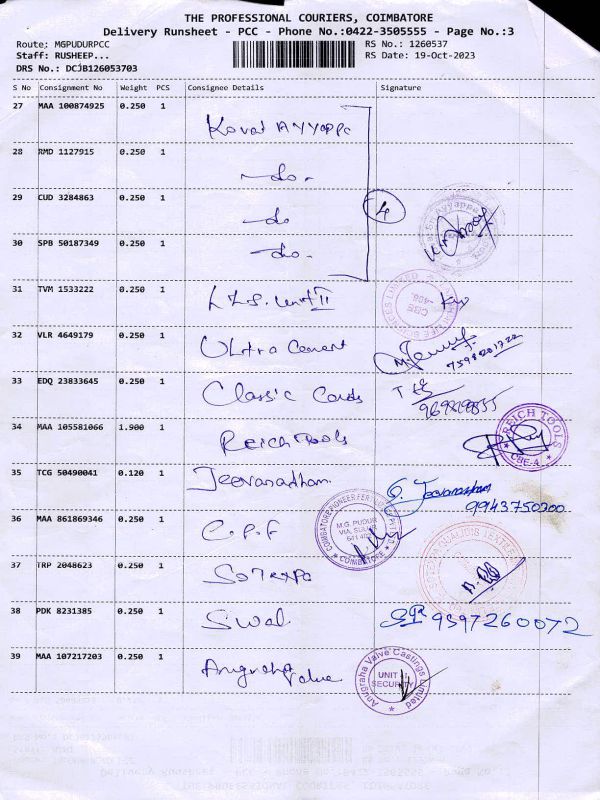 THE PROFESSIONAL COURIERS, COIMBATORE
Delivery Runsheet - PCC - Phone No.:0422-3505555 - Page No.:3
Route: MGPUDURPCC RS No.: 1260537
Staff: RUSHEEP... RS Date: 19-Oct-2023
DRS No.: DCJB126053703
S No Consignment No Weight PCS Consignee Details Signature
27 MAA 100874925 0.250 1 Kovai Ayyappa
28 RMD 1127915 0.250 1 -do-
29 CUD 3284863 0.250 1 -do 4
30 SPB 50187349 0.250 1 -do-
31 TVM 1533222 0.250 1 Unit II
32 VLR 4649179 0.250 1 Ultra Cement
7598201722
33 EDQ 23833645 0.250 1 Classic Cards
34 MAA 105581066 1.900 1 Reich Tools REICH TOOLS CBE-4
35 TCG 50490041 0.120 1 Jeevanadham G. Jeevanandham
9943750300
36 MAA 861869346 0.250 1 C.P.F M.G. PUDUR
COIMBATORE
37 TRP 2048623 0.250 1
38 PDK 8231385 0.250 1 Swal 9597260072
39 MAA 107217203 0.250 1 Anugraha Valve Anugraha Valve Castings Limited
UNIT II
SECURITY